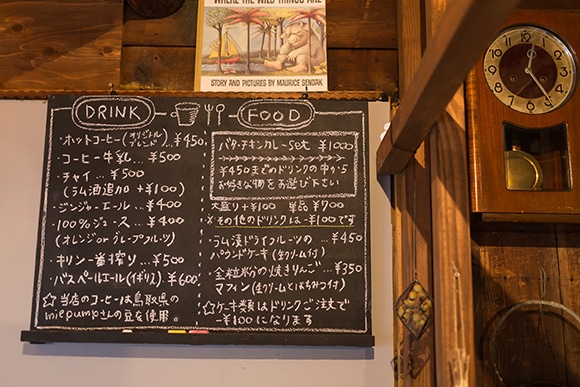 WHERE THE WILD THINGS ARE
STORY AND PICTURES BY MAURICE SENDAK
DRINK
・ホットコーヒー(オリジナルブレンド) ¥450
・コーヒー牛乳… ¥500
・チャイ … ¥500
(ラム酒追加 +¥100)
・ジンジャーエール … ¥400
・100%ジュース … ¥400
(オレンジorグレープフルーツ)
・キリン一番搾り … ¥500
・バスペールエール(イギリス). ¥600
☆当店のコーヒーは鳥取県の
miepumpさんの豆を使用。
FOOD
バターチキンカレーSet ¥1000
¥450までのドリンクの中から
お好きな物をお選び下さい
大盛り+¥100 単品 ¥700
※その他のドリンクは-¥100です
・ラム漬ドライフルーツの … ¥450
パウンドケーキ(生クリーム付)
・全粒粉の焼きりんご … ¥350
マフィン(生クリームとはちみつ付)
☆ケーキ類はドリンクご注文で
-¥100になります